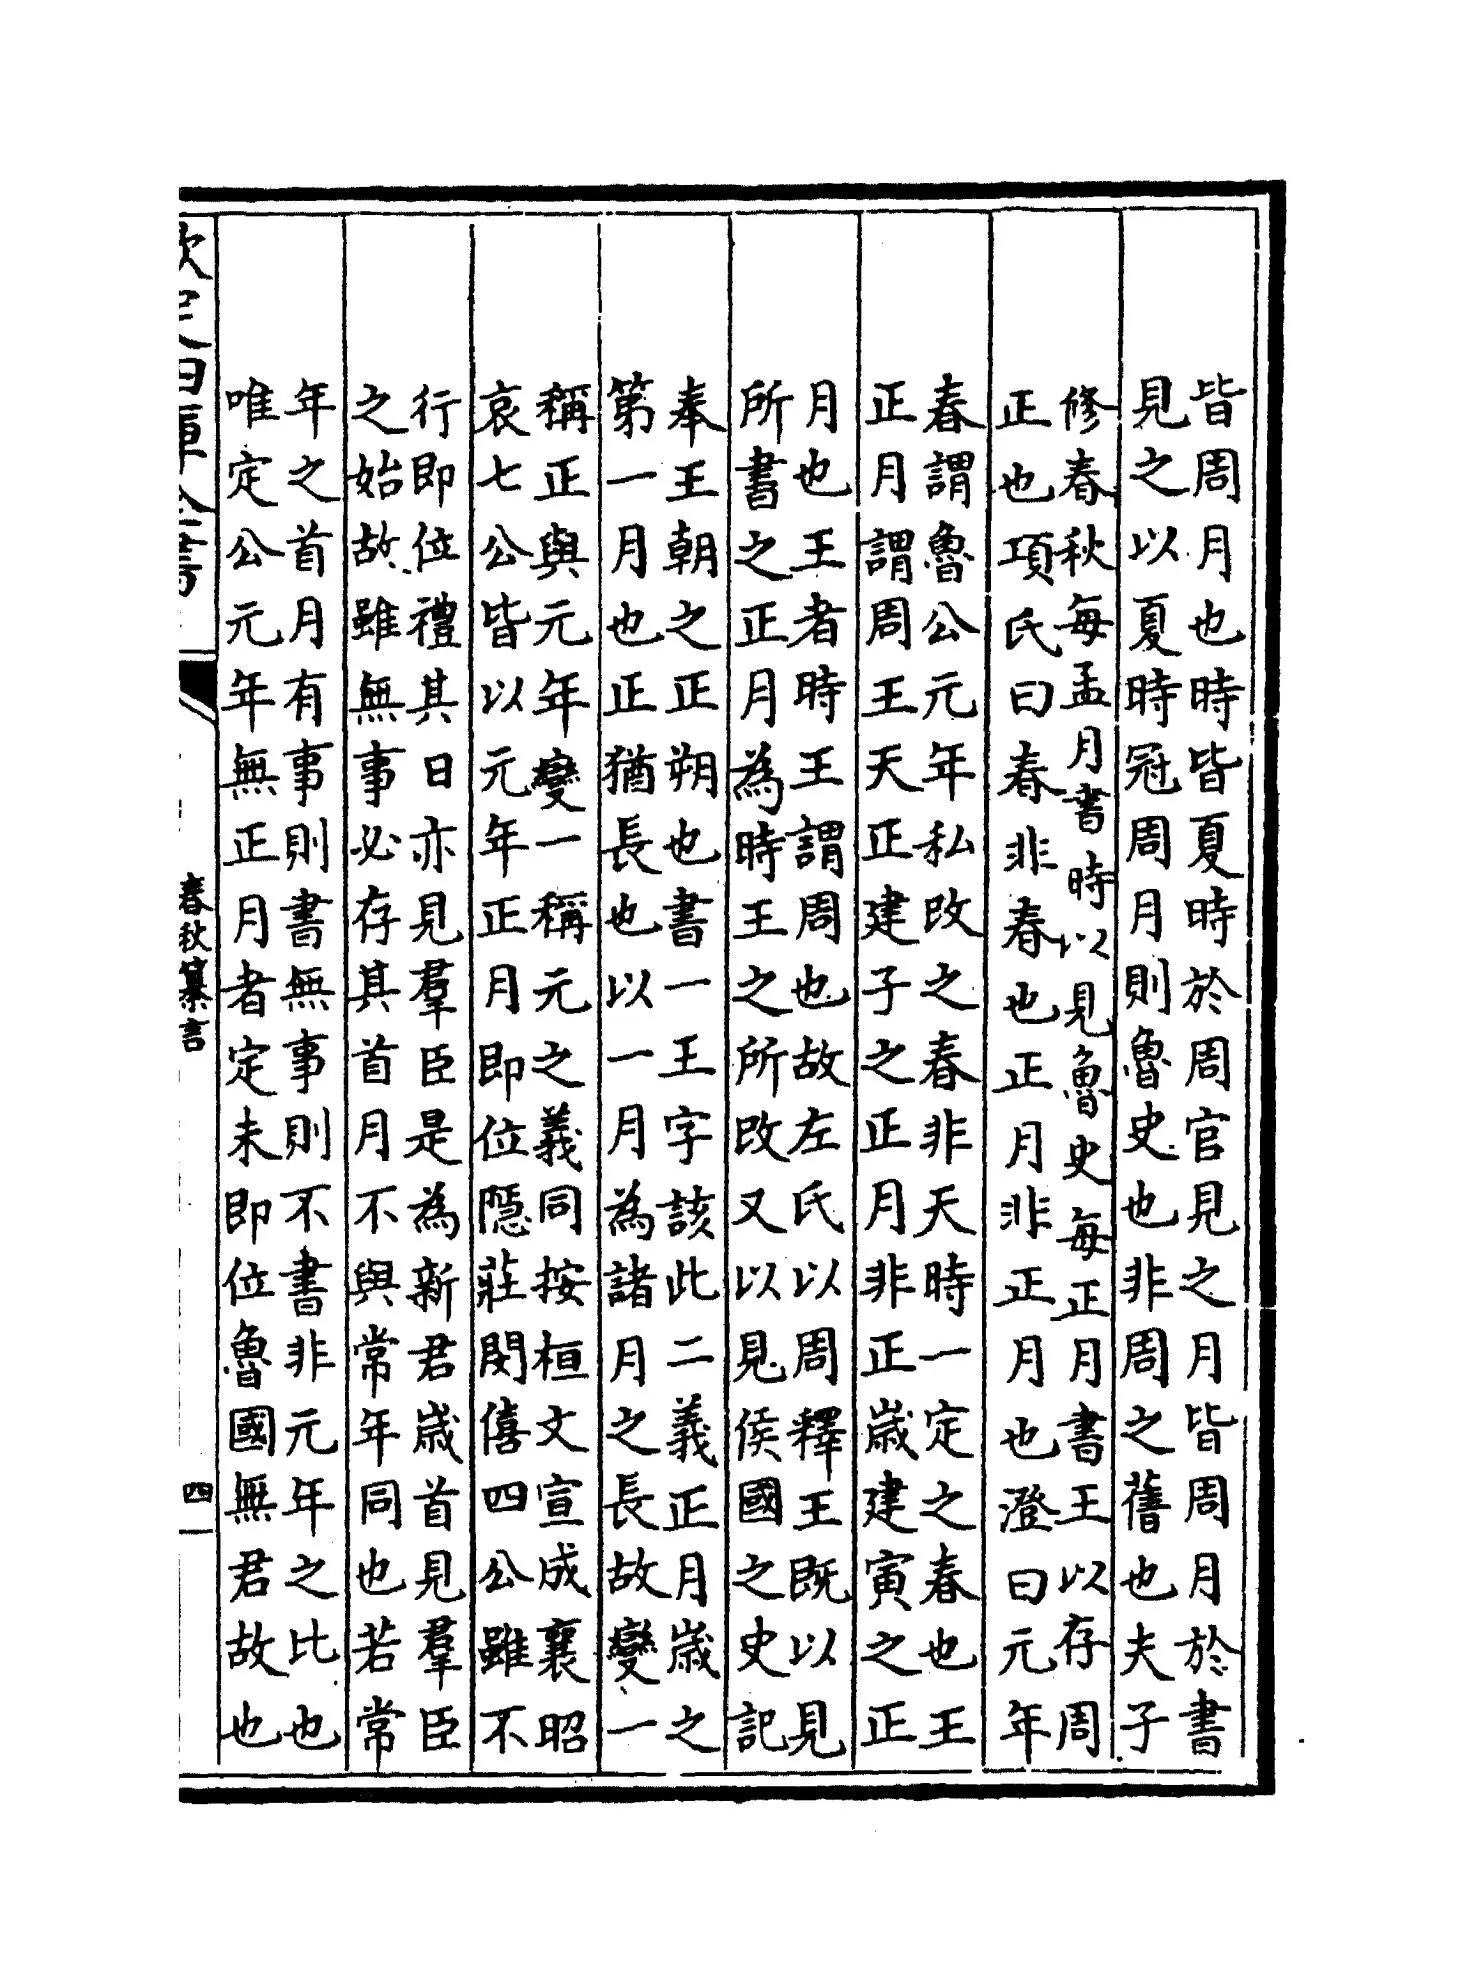 皆周月也時皆夏時於周官見之月皆周月於書
見之以夏時冠周月則魯史也非周之舊也夫子
修春秋每孟月書時以見魯史每正月書王以存周
正也項氏曰春非春也正月非正月也澄曰元年
春謂魯公元年私改之春非天時一定之春也王
正月謂周王天正建子之正月非正歲建寅之正
月也王者時王謂周也故左氏以周釋王既以見
所書之正月為時王之所改又以見侯國之史記
奉王朝之正朔也書一王字該此二義正月歲之
第一月也正猶長也以一月為諸月之長故變一
稱正與元年變一稱元之義同按桓文宣成襄昭
哀七公皆以元年正月即位隱莊閔僖四公雖不
行即位禮其日亦見羣臣是為新君歲首見羣臣
之始故雖無事必存其首月不與常年同也若常
年之首月有事則書無事則不書非元年之比也
唯定公元年無正月者定未即位魯國無君故也
欽定四庫全書
春秋纂言
四